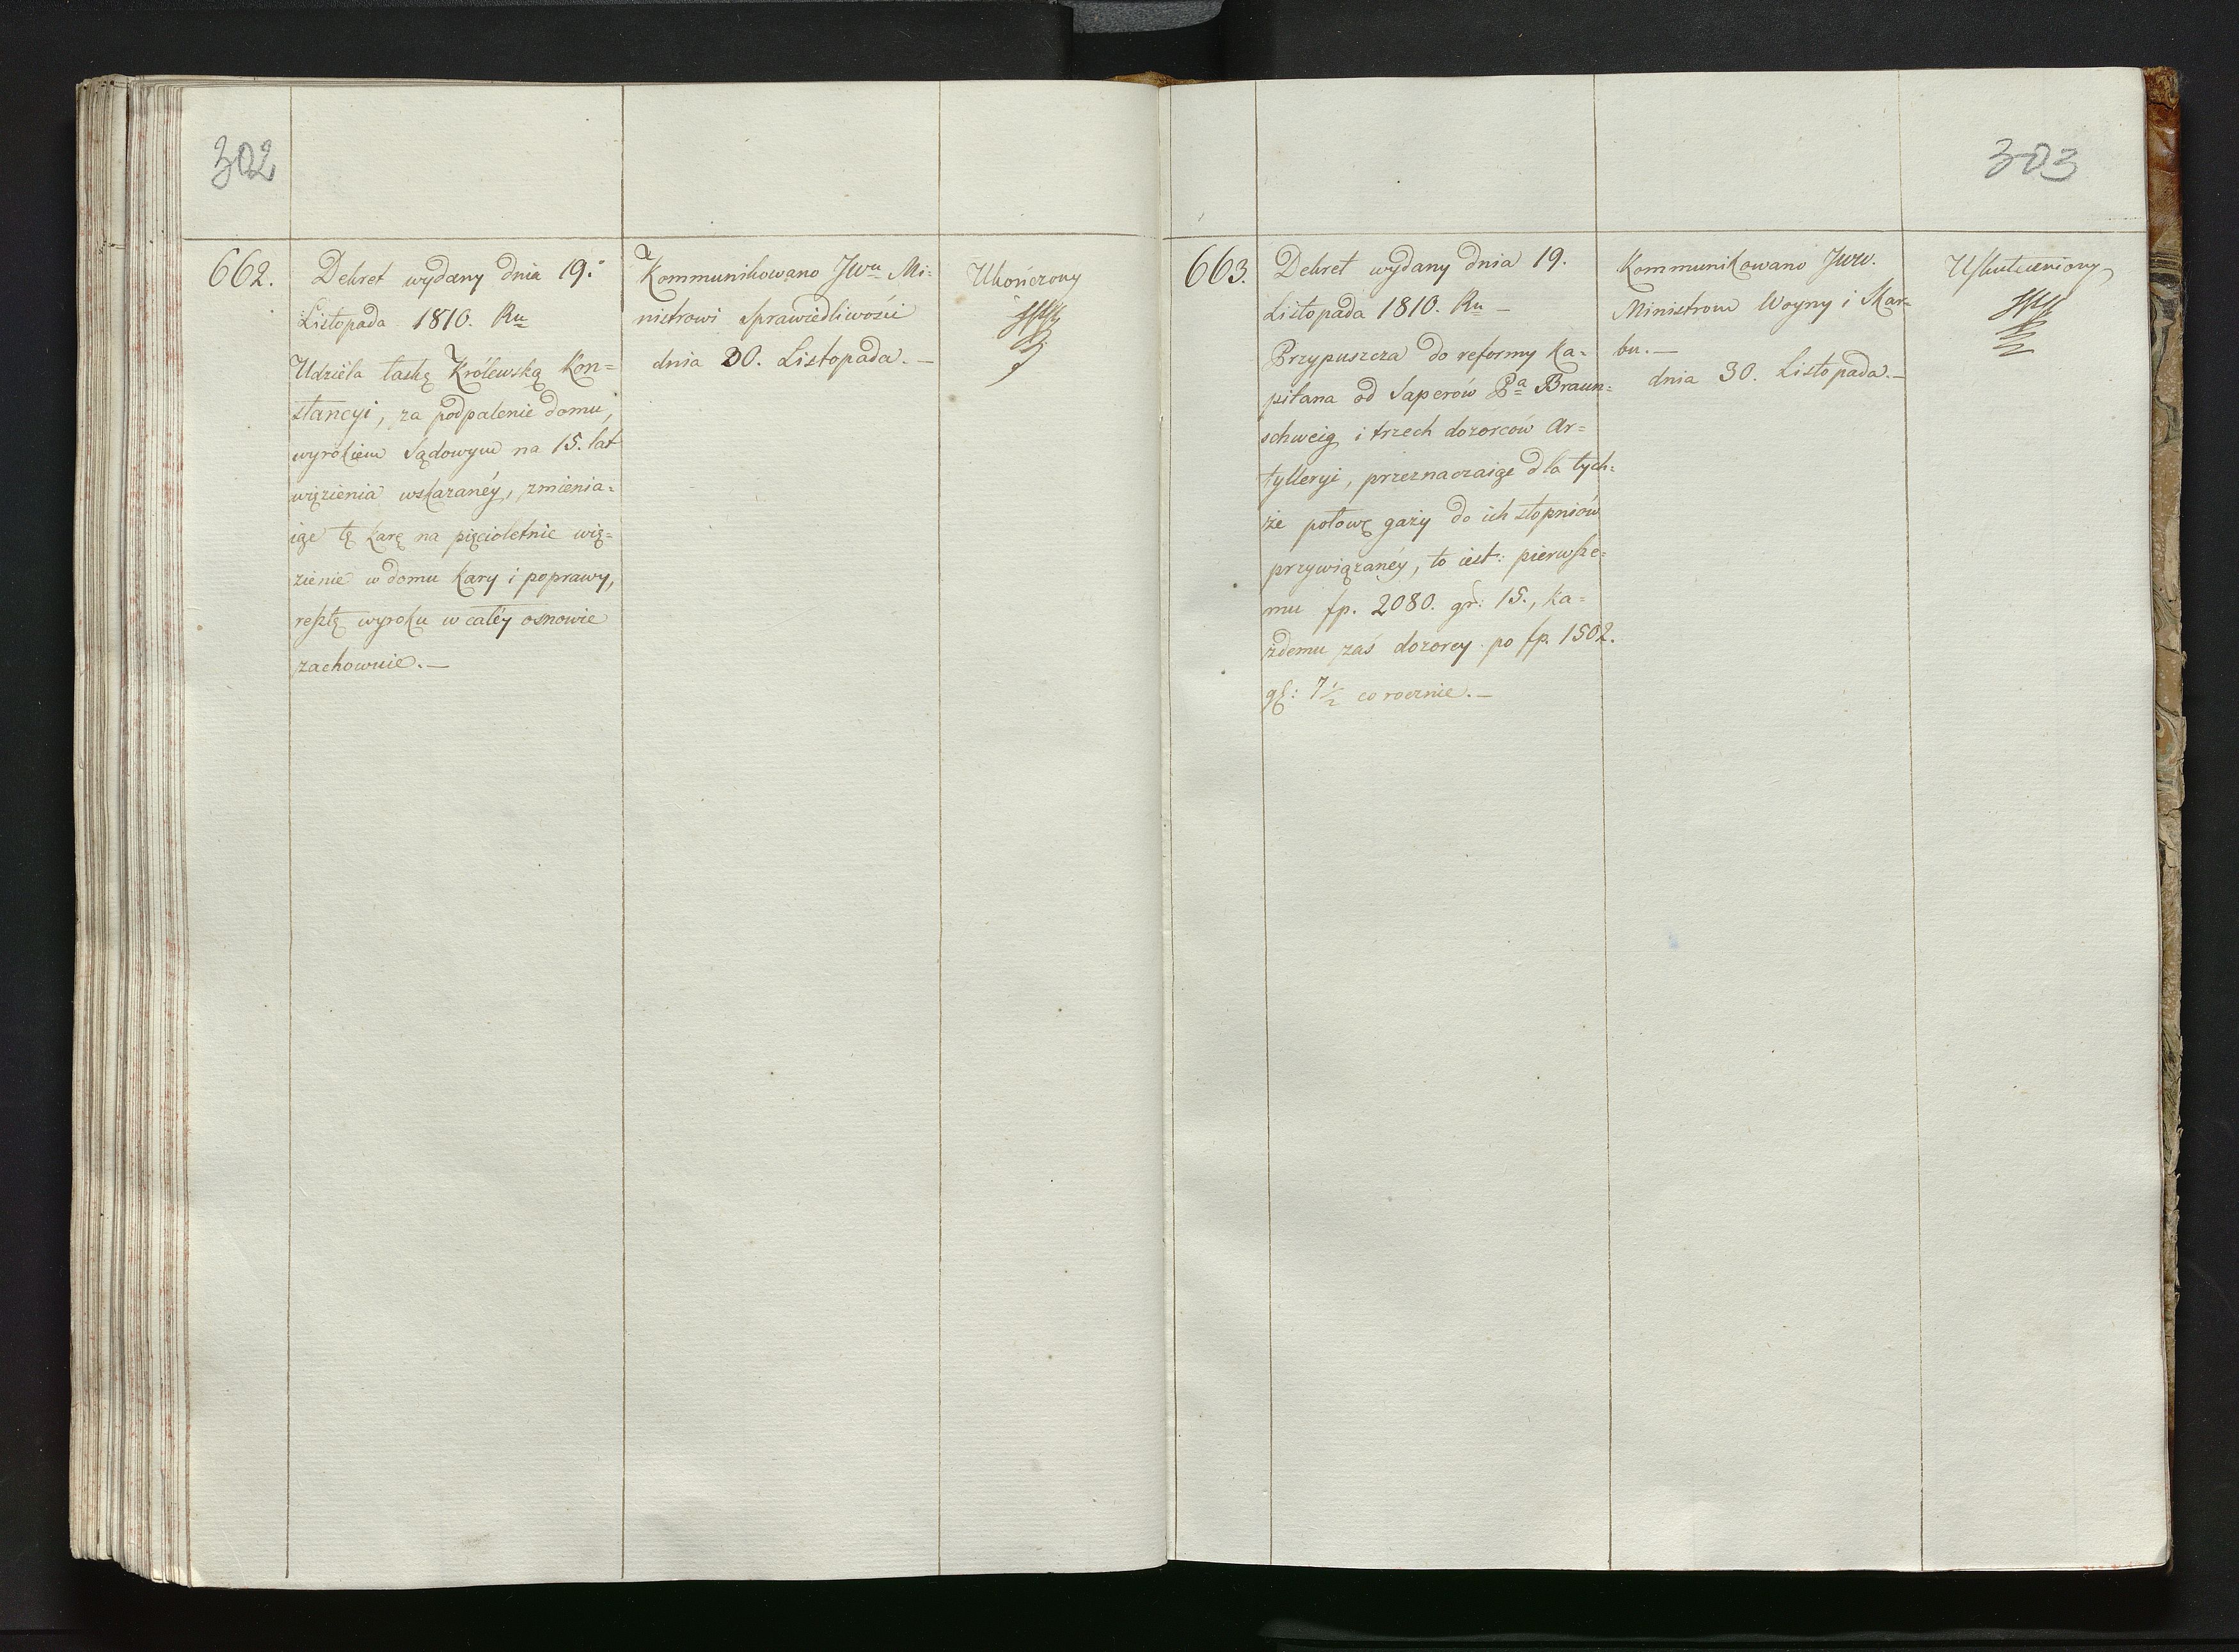 302
662.
Dekret wydany dnia 19.
Listopada 1810. Ru
Udziela łaskę Królewską Kon=
stancyi, za podpalenie domu,
wyrokiem Sądowym na 15. lat
więzienia wskazanéy, zmienia=
iąc tę karę na pięcioletnie wię=
zienie w domu kary i poprawy,
resztę wyroku w całéy osnowie
zachowuie.—
Kommunikowano JWu Mi=
nistrowi Sprawiedliwości
dnia 30. Listopada.—
Ukończony
303
663.
Dekret wydany dnia 19.
Listopada 1810. Ru —
Przypuszcza do reformy Ka=
pitana od Saperów Pa Braun=
schweig i trzech dozorców Ar=
tylleryi, przeznaczaiąc dla tych=
że połowę gaży do ich stopniów
przywiązanéy, to iest: pierwsze=
mu fp. 2080. gr: 15., ka=
żdemu zaś dozorcy po fp. 1502.
gr: 7½ corocznie.—
Kommunikowano JWW.
Ministrom Woyny i Skar=
bu.—
dnia 30. Listopada.—
Uskuteczniony